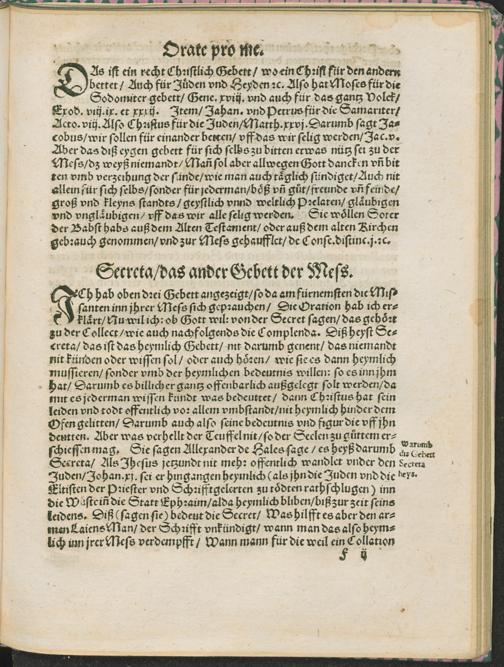 Orate pro me.
DAs ist ein recht Christlich Gebett/ wo ein Christ für den andern
bettet/ Auch für Jüden vnd Heyden ꝛc. Also hat Moses für die
Sodomiter gebett/ Gene. xviij. vnd auch für das gantz Volck/
Exod. viij. ix. et xxxij. Item/ Johan. vnd Petrus für die Samariter/
Acto. viij. Also Christus für die Juden/ Matth. xxvj. Darumb sagt Ja-
cobus/ wir sollen für einander betten/ vff das wir selig werden/ Jac. v.
Aber das diß eygen gebett für sich selbs zu bitten etwas nütz sei zu der
Mess/ dz weyß niemandt/ Mañ sol aber allwegen Gott dancken vñ bit
ten vmb verzeihung der sünde/ wie man auch täglich sündiget/ Auch nit
allein für sich selbs/ sonder für jederman/ böß vñ gůt/ freunde vñ feinde/
groß vnd kleyns standts/ geystlich vnnd weltlich Prelaten/ gläubigen
vnd vngläubigen/ vff das wir alle selig werden. Sie wöllen Soter
der Babst habs auß dem Alten Testament/ oder auß dem alten Kirchen
gebrauch genommen/ vnd zur Mess gehaufflet/ de Conse. distinc. j. ꝛc.
Secreta/ das ander Gebett der Mess.
ICh hab oben drei Gebett angezeigt/ so da am fürnemsten die Mis-
santen inn jhrer Mess sich geprauchen/ Die Oration hab ich er-
klärt/ Nu wil ich ob Gott wil von der Secret sagen/ das gehört
zu der Collect/ wie auch nachfolgends die Complenda. Diß heyst Se-
creta/ das ist das heymlich Gebett/ nit darumb genent/ das niemandt
nit künden oder wissen sol/ oder auch hören/ wie sie es dann heymlich
mussieren/ sonder vmb der heymlichen bedeutnis willen: so es inn jhm
hat/ Darumb es billicher gantz offenbarlich außgelegt solt werden/ da
mit es jederman wissen kündt was bedeutet/ dann Christus hat sein
leiden vnd todt offentlich vor allem vmbstandt/ nit heymlich hinder dem
Ofen gelitten/ Darumb auch also seine bedeutnis vnd figur die vff jhn
deutten. Aber was verhelt der Teuffel nit/ so der Seelen zu gůttem er-
schiessen mag. Sie sagen Allexander de Hales sage/ es heyß darumb
Secreta/ Als Jhesus jetzundt nit mehr offentlich wandlet vnder den
Juden/ Johan. xj. sei er hyngangen heymlich (als jhn die Juden vnd die
Eltisten der Priester vnd Schrifftgelerten zu tödten rathschlugen) inn
die Wüste in die Statt Ephraim/ alda heymlich bliben/ biß zur zeit seins
leidens. Diß (sagen sie) bedeut die Secret/ Was hilfft es aber den ar-
man Laiens Man/ der Schrifft vnkündigt/ wann man das also heym-
lich inn jrer Mess verdempfft/ Wann mann für die weil ein Collation
Warumb
die Gebett
Secreta
heyß.
f ij